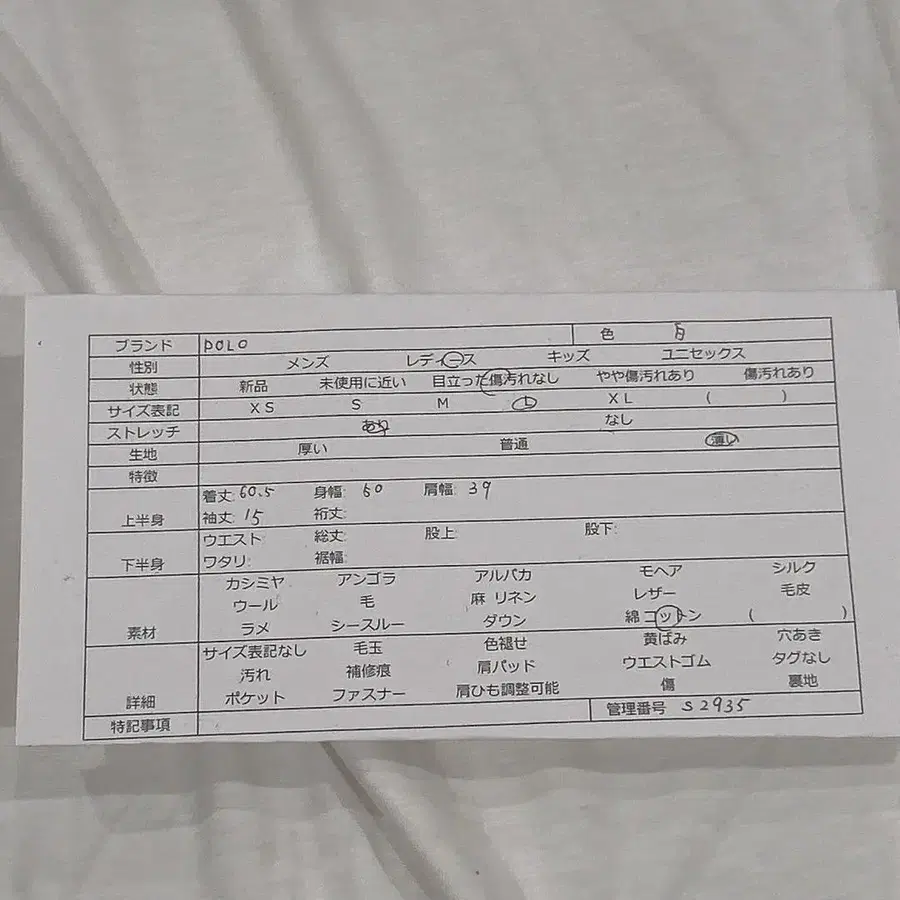 ブランド POLO 色 白
性別 メンズ レディース キッズ ユニセックス
状態 新品 未使用に近い 目立った傷汚れなし やや傷汚れあり 傷汚れあり
サイズ表記 XS S M L XL ( )
ストレッチ あり なし
生地 厚い 普通 薄い
特徴
上半身 着丈: 60.5 身幅: 60 肩幅: 39
袖丈: 15 裄丈:
下半身 ウエスト: 総丈: 股上: 股下:
ワタリ: 裾幅:
素材 カシミヤ アンゴラ アルパカ モヘア シルク
ウール 毛 麻 リネン レザー 毛皮
ラメ シースルー ダウン 綿 コットン ( )
詳細 サイズ表記なし 毛玉 色褪せ 黄ばみ 穴あき
汚れ 補修痕 肩パッド ウエストゴム タグなし
ポケット ファスナー 肩ひも調整可能 傷 裏地
特記事項 管理番号 S2935